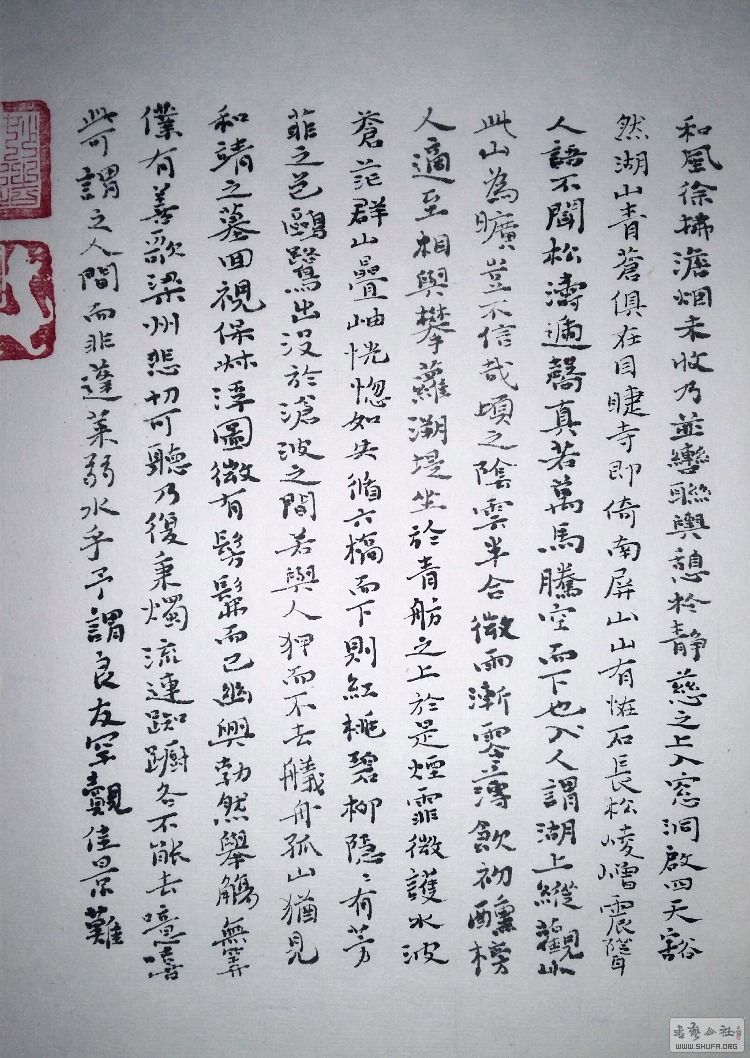 和風徐拂澹烟未收乃並轡聯輿憩於静慈之上入窓洞啟四天豁
然湖山青蒼俱在目睫寺即倚南屏山山有怪石長松崚嶒震聳
人語不聞松濤逓響真若萬馬騰空而下也入人謂湖上縱觀此
此山為曠豈不信哉頃之陰雲半合微雨漸零薄飲初醺榜
人適至相與攀蘿溯堤坐於青舫之上於是煙霏微護水波
蒼茫群山疊岫恍惚如失循六橋而下則紅桃碧柳隱〻有芳
菲之色鷗鷺出没於滄波之間若與人狎而不去艤舟孤山猶見
和靖之墓回視保叔浮圖微有髣髴而已幽興勃然舉觴無算
僕有善歌梁州悲切可聽乃復秉燭流連踟躕各不能去噫嘻
此可謂之人間而非蓬萊弱水乎予謂良友罕覯佳景難
書藝公社
WWW.SHUFA.ORG